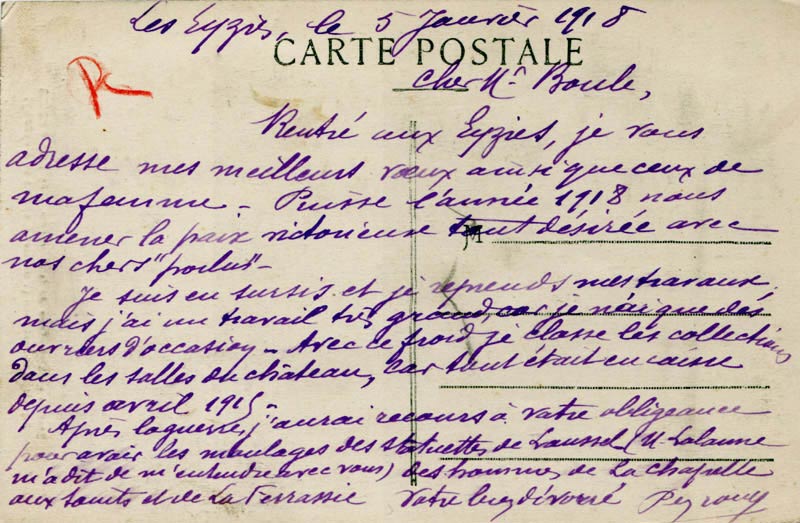 Les Eyzies, le 5 Janvier 1918
CARTE POSTALE
Cher Mr Boule,
Rentré aux Eyzies, je vous
adresse mes meilleurs vœux ainsi que ceux de
ma femme - Puisse l'année 1918 nous
amener la paix victorieuse tant désirée avec
nos chers "poilus" -
Je suis en sursis et je reprends mes travaux,
mais j'ai un travail très grand, car je n'ai que des
ouvriers d'occasion - Avec ce froid je classe les collections
dans les salles du château, car tout était en caisse
depuis avril 1915 -
Après la guerre, j'aurai recours à votre obligeance
pour avoir les moulages des statuettes de Laussel (M. Lalanne
m'a dit de m'entendre avec vous) des hommes de La Chapelle
aux Saints et de La Ferrassie Votre bien dévoué Peyrony